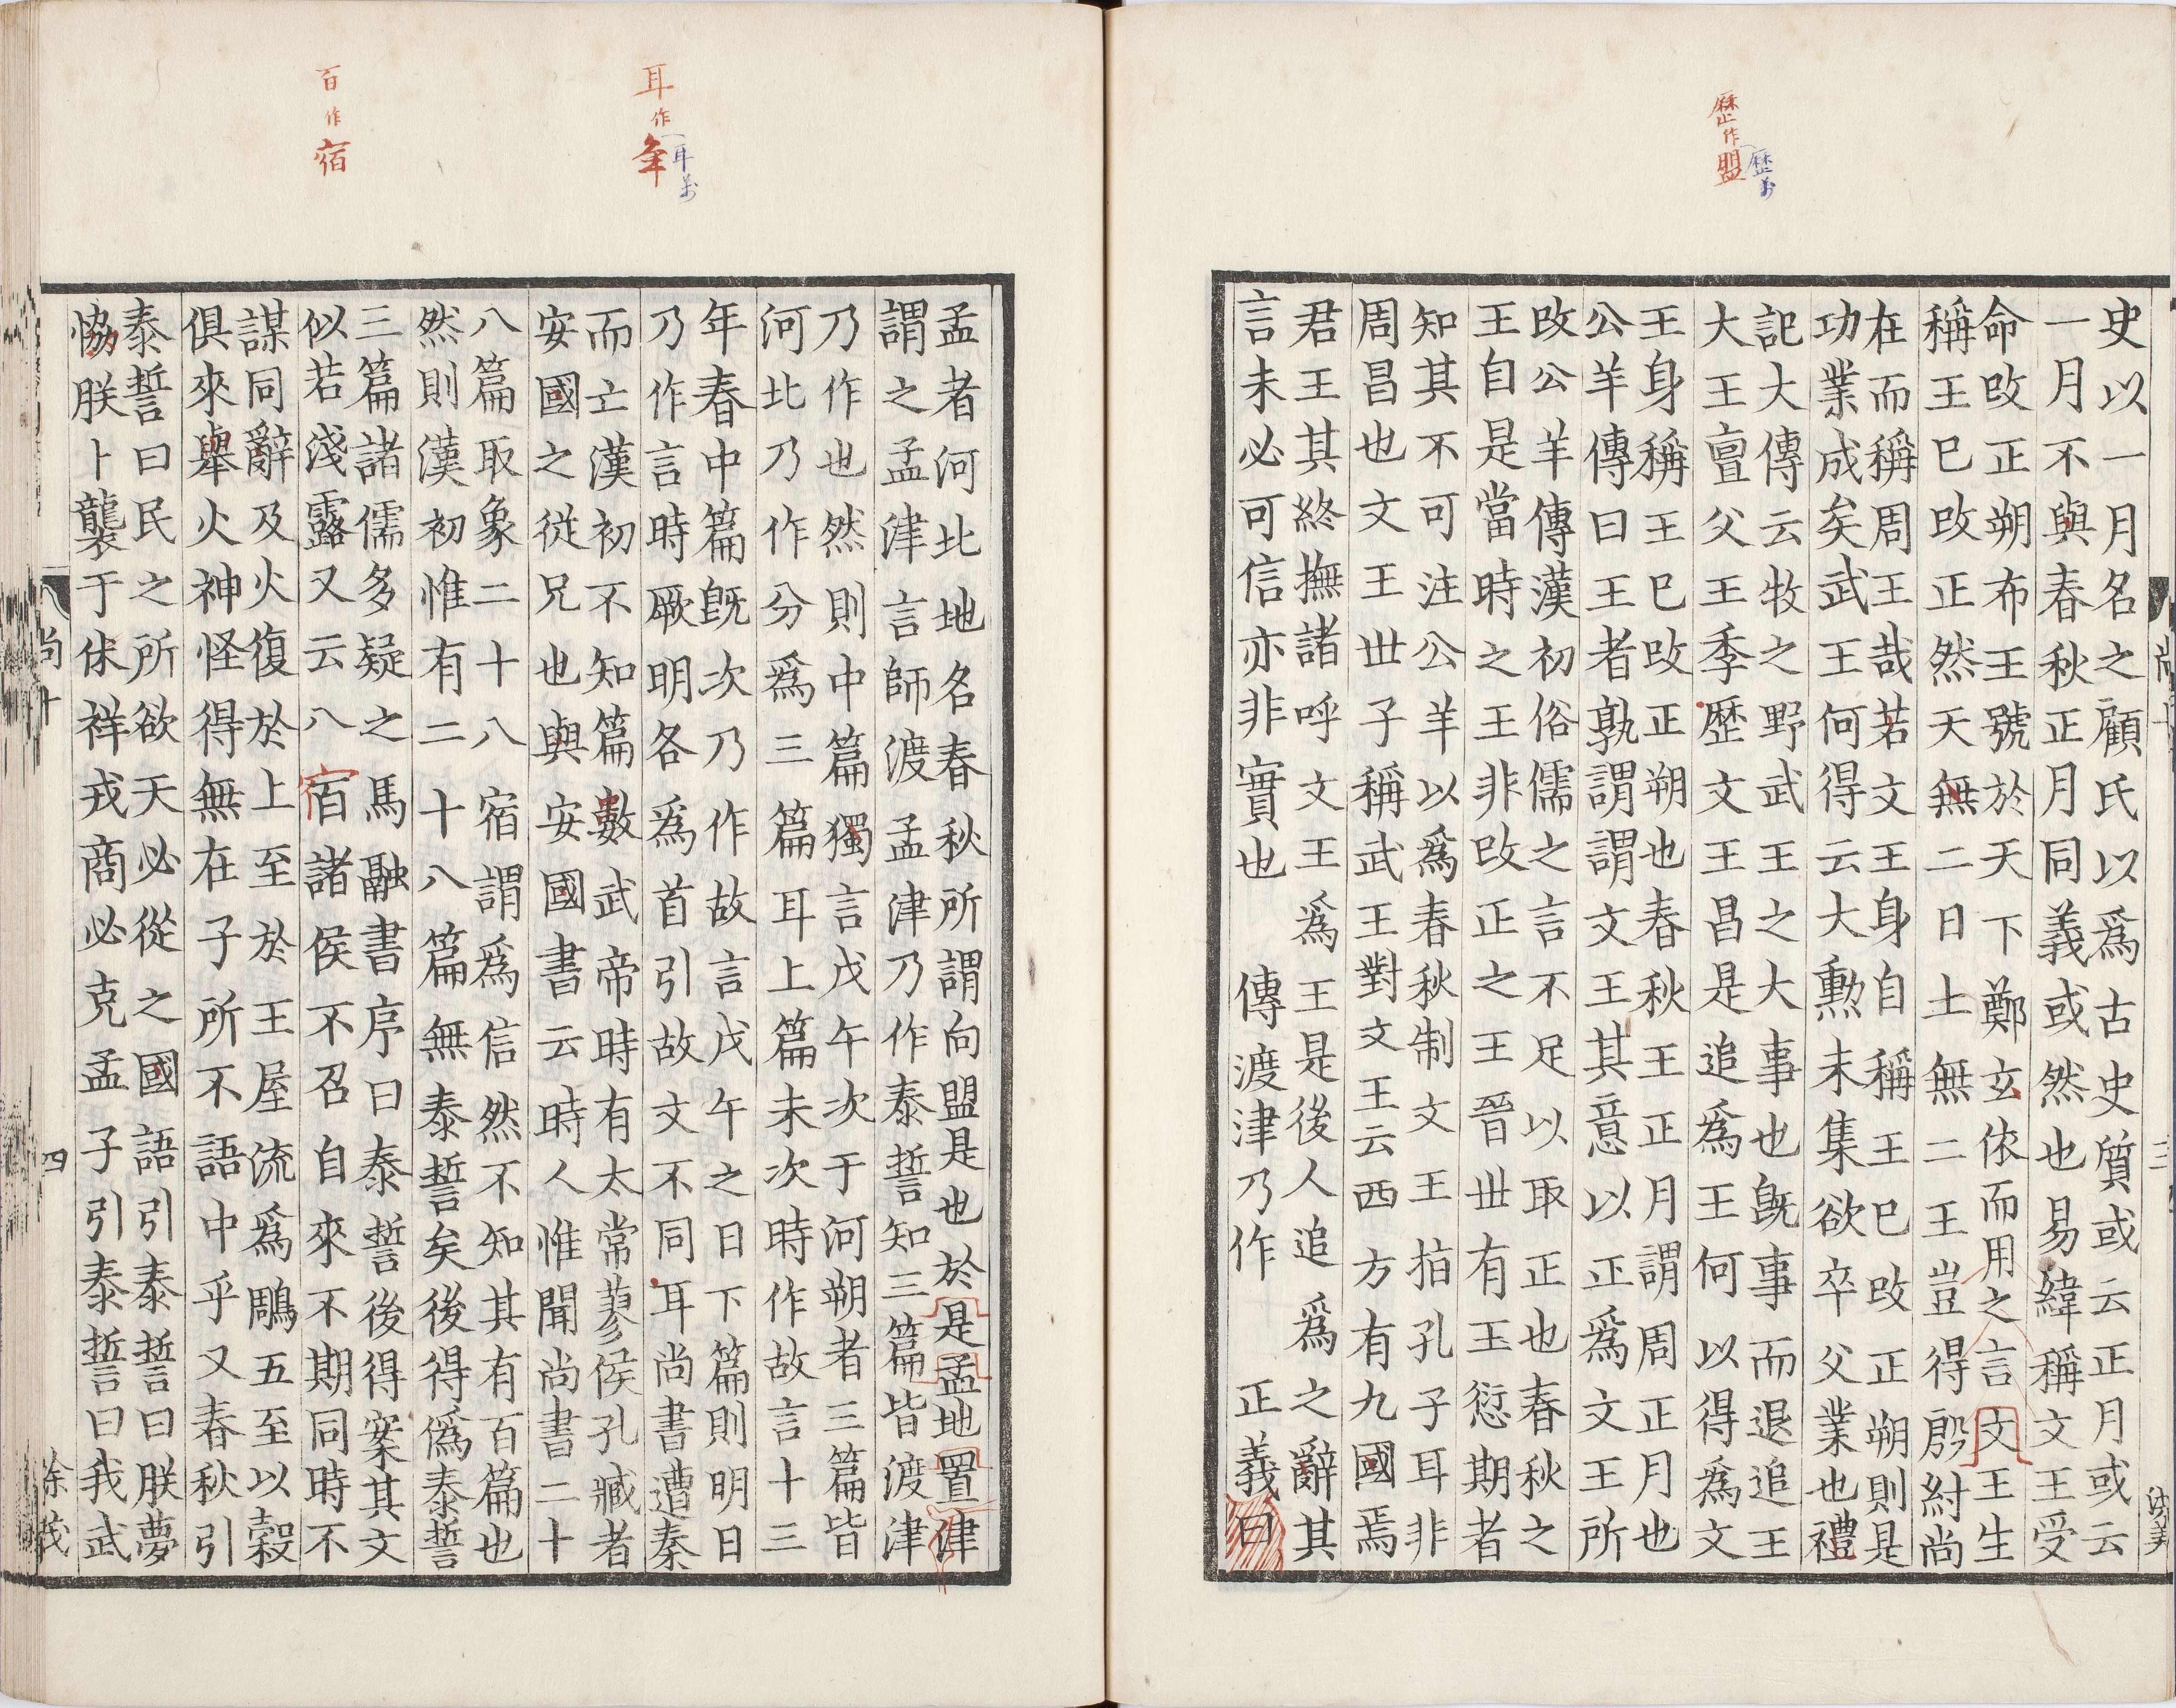 史以一月名之顧氏以爲古史質或云正月或云
一月不與春秋正月同義或然也易緯稱文王受
命攺正朔布王號於天下鄭玄依而用之言文王生
稱王巳攺正然天無二日土無二王豈得殷紂尚
在而稱周王哉若文王身自稱王巳攺正朔則是
功業成矣武王何得云大勲未集欲卒父業也禮
記大傳云牧之野武王之大事也旣事而退追王
大王亶父王季歷文王昌是追爲王何以得爲文
王身稱王巳攺正朔也春秋王正月謂周正月也
公羊傳曰王者孰謂謂文王其意以正爲文王所
攺公羊傳漢初俗儒之言不足以取正也春秋之
王自是當時之王非攺正之王晉世有王愆期者
知其不可注公羊以爲春秋制文王指孔子耳非
周昌也文王世子稱武王對文王云西方有九國焉
君王其終撫諸呼文王爲王是後人追爲之辭其
言未必可信亦非實也 傳渡津乃作 正義曰
歷作盟
歷翁
孟者河北地名春秋所謂向盟是也於是孟地置津
謂之孟津言師渡孟津乃作泰誓知三篇皆渡津
乃作也然則中篇獨言戊午次于河朔者三篇皆
河北乃作分爲三篇耳上篇未次時作故言十三
年春中篇旣次乃作故言戊午之日下篇則明日
乃作言時厥明各爲首引故文不同耳尚書遭秦
而亡漢初不知篇數武帝時有太常蓼侯孔臧者
安國之從兄也與安國書云時人惟聞尚書二十
八篇取象二十八宿謂爲信然不知其有百篇也
然則漢初惟有二十八篇無泰誓矣後得僞泰誓
三篇諸儒多疑之馬融書序曰泰誓後得案其文
似若淺露又云八百諸侯不召自來不期同時不
謀同辭及火復於上至於王屋流爲鵰五至以穀
俱來舉火神怪得無在子所不語中乎又春秋引
泰誓曰民之所欲天必從之國語引泰誓曰朕夢
恊朕卜襲于休祥戎商必克孟子引泰誓曰我武
耳作年
耳翁
百作宿
尚十
四